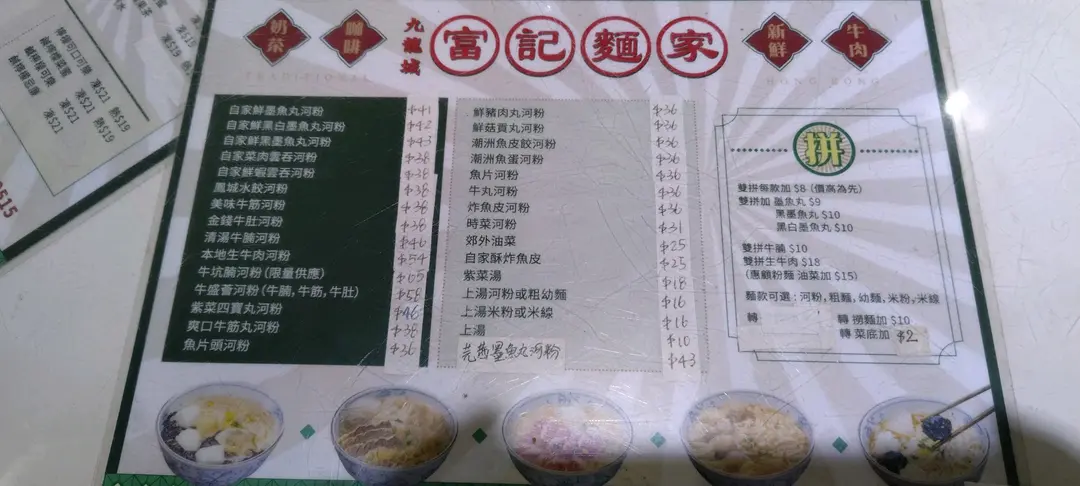 奶茶
咖啡
九龍城
富記麵家
新鮮
牛肉
TRADITIONAL
HONG KONG
自家鮮墨魚丸河粉 $41
自家鮮黑白墨魚丸河粉 $42
自家鮮黑墨魚丸河粉 $43
自家菜肉雲吞河粉 $38
自家鮮蝦雲吞河粉 $38
鳳城水餃河粉 $38
美味牛筋河粉 $38
金錢牛肚河粉 $38
清湯牛腩河粉 $46
本地生牛肉河粉 $54
牛坑腩河粉(限量供應) $65
牛盛薈河粉(牛腩,牛筋,牛肚) $58
紫菜四寶丸河粉 $46
爽口牛筋丸河粉 $38
魚片頭河粉 $36
鮮豬肉丸河粉 $36
鮮菇貢丸河粉 $36
潮洲魚皮餃河粉 $36
潮洲魚蛋河粉 $36
魚片河粉 $36
牛丸河粉 $36
炸魚皮河粉 $36
時菜河粉 $31
郊外油菜 $25
自家酥炸魚皮 $25
紫菜湯 $18
上湯河粉或粗幼麵 $16
上湯米粉或米線 $16
上湯 $10
芫茜墨魚丸河粉 $43
拼
雙拼每款加 $8 (價高為先)
雙拼加 墨魚丸 $9
黑墨魚丸 $10
黑白墨魚丸 $10
雙拼牛腩 $10
雙拼生牛肉 $18
(惠顧粉麵 油菜加 $15)
麵款可選:河粉,粗麵,幼麵,米粉,米線
轉 轉 撈麵加 $10
轉 菜底加 $2
凍$19
檸檬可口可樂 凍$21 熱$19
凍$21 熱$19
凍$21 熱$19
凍$21
$15